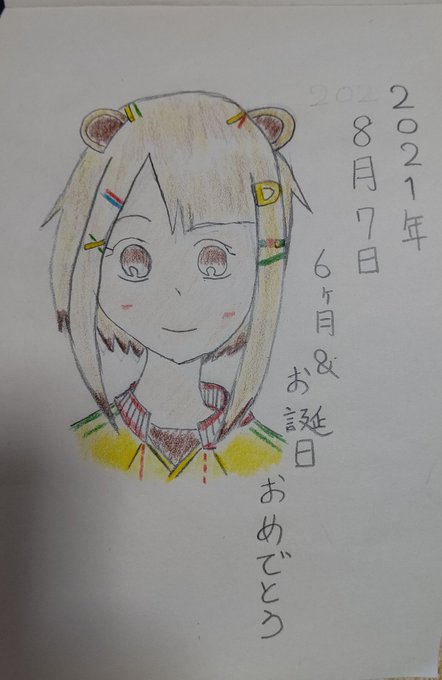 2021年
8月7日
6ヶ月&
お誕日
おめでとう
D